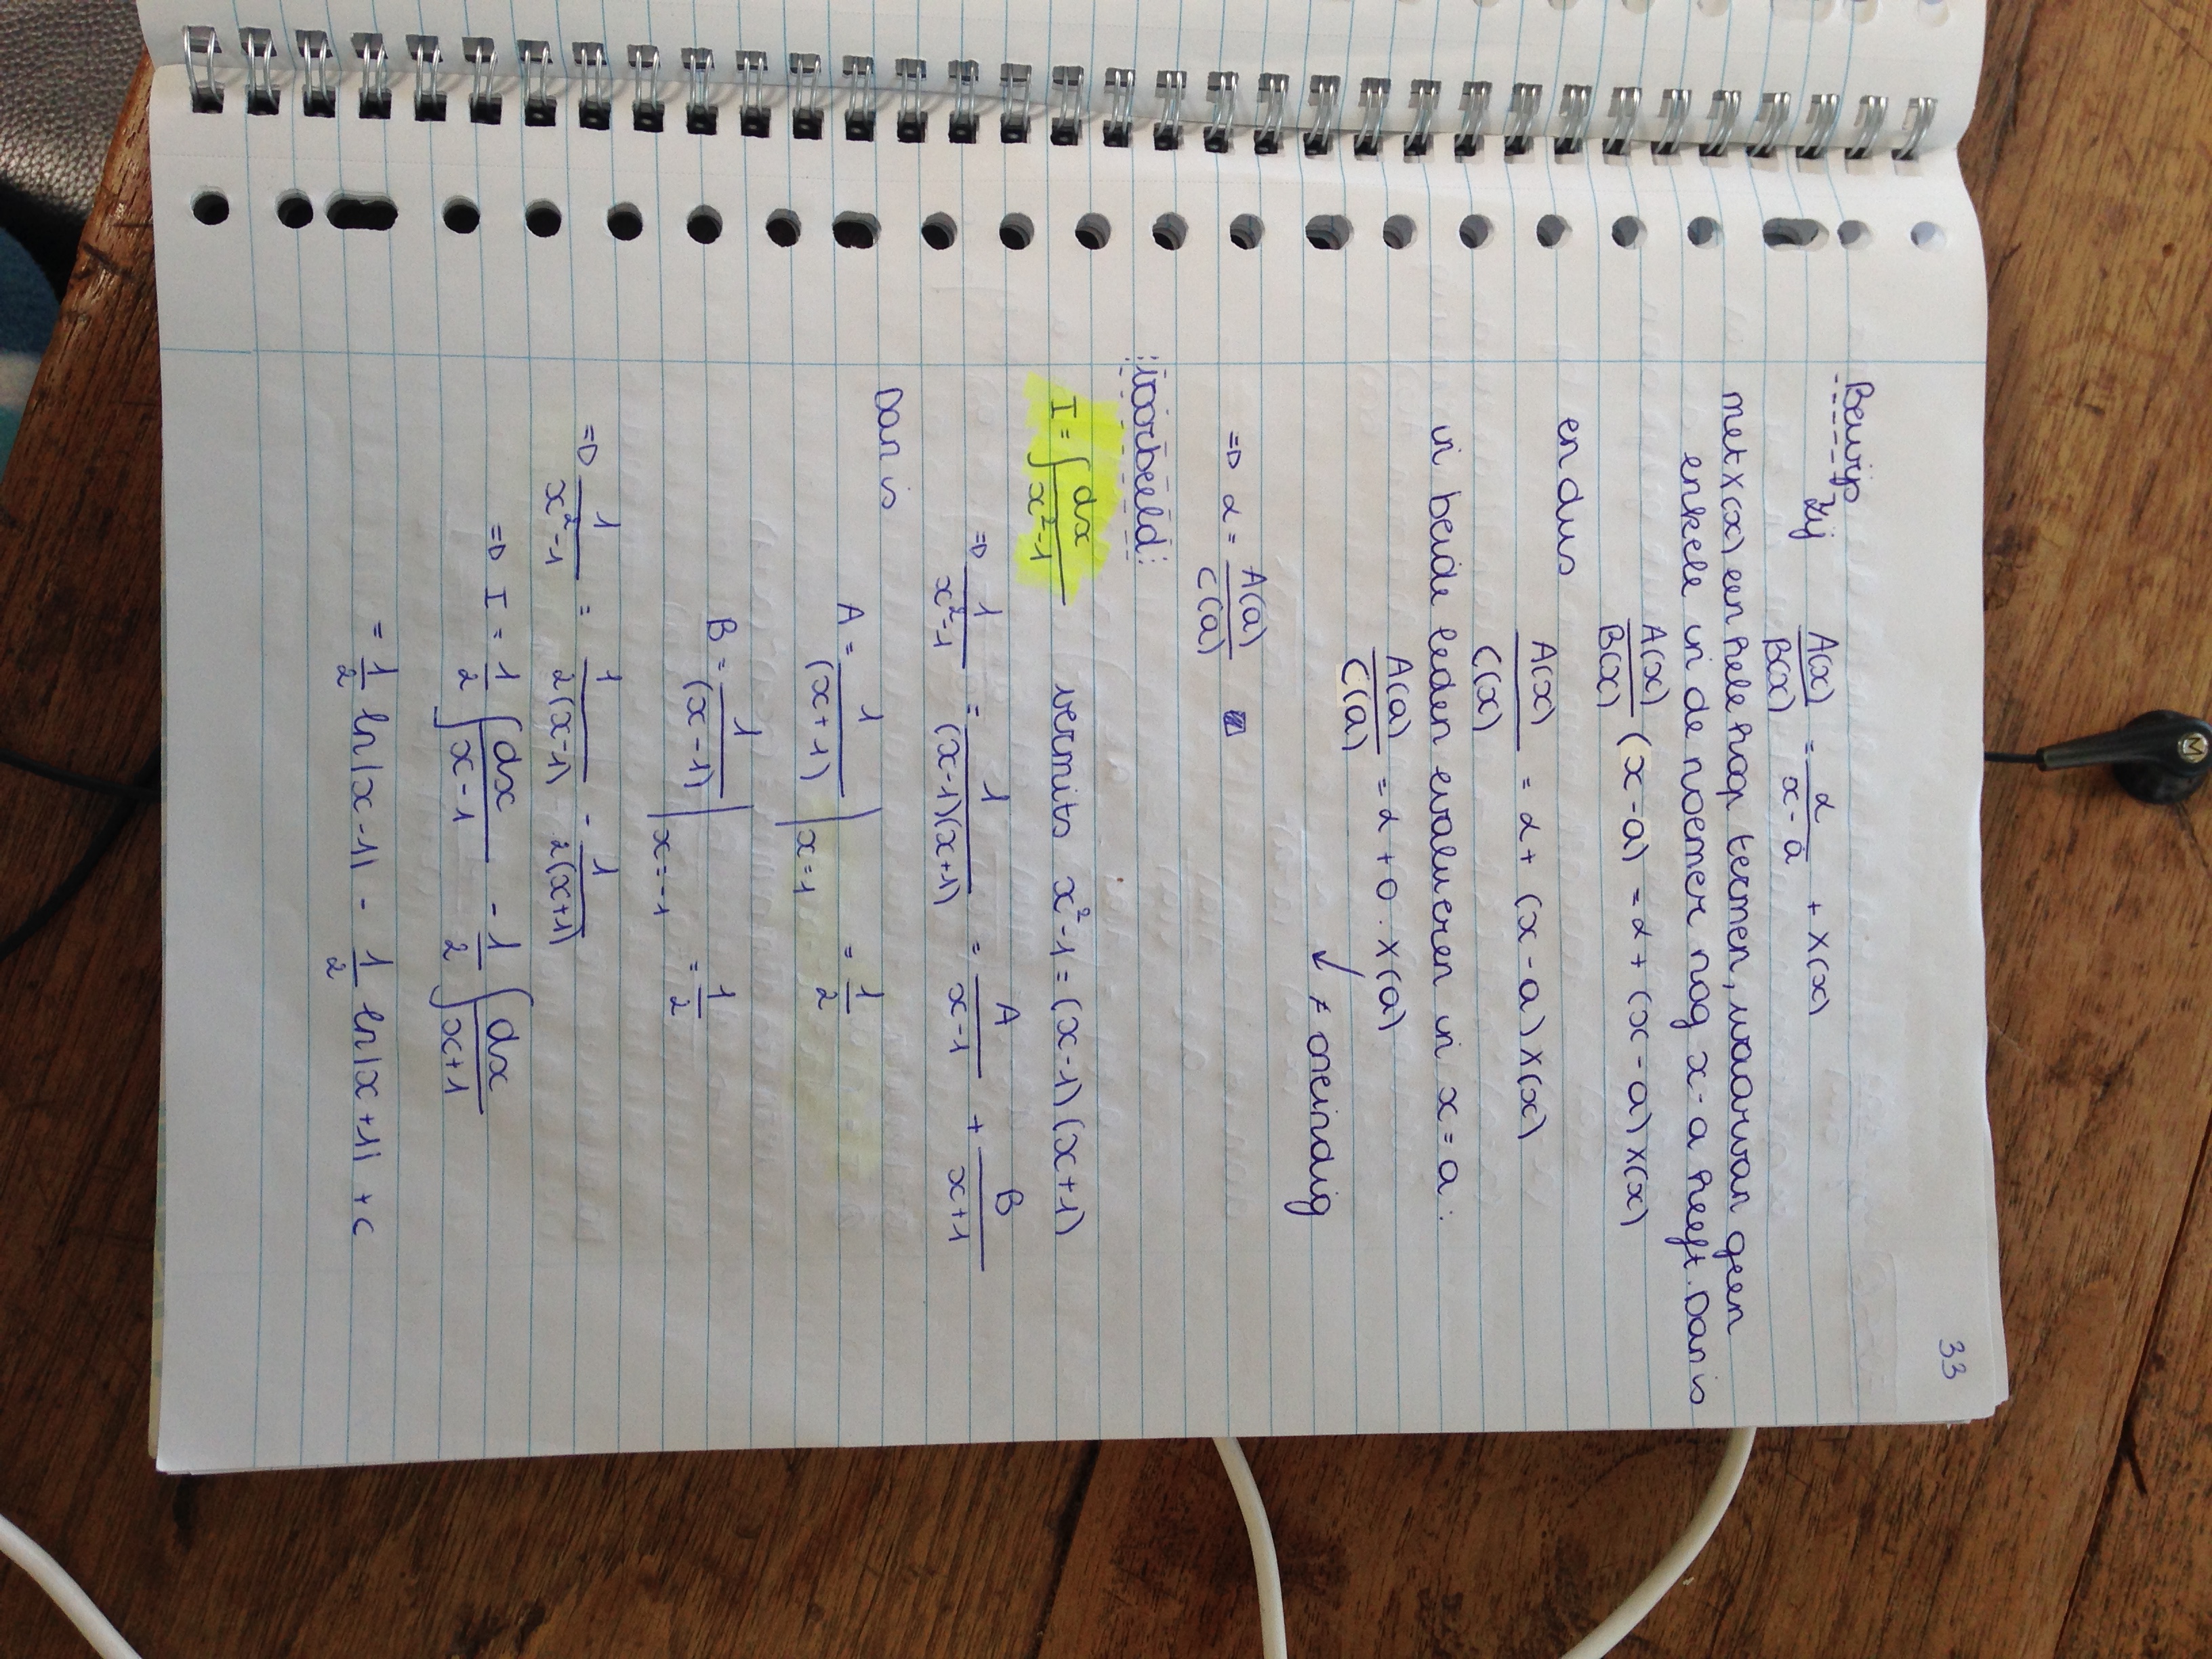 M
33
Bewijs
Zij A(x)/B(x) = α/(x-a) + X(x)
met X(x) een hele hoop termen, waarvan geen
enkele in de noemer nog x-a heeft. Dan is
A(x)/B(x) (x-a) = α + (x-a) X(x)
en dus
A(x)/C(x) = α + (x-a) X(x)
in beide leden evalueren in x = a :
A(a)/C(a) = α + 0 . X(a)
↓ ≠ oneindig
=> α = A(a)/C(a)
voorbeeld:
I = ∫ dx/(x²-1) vermits x²-1 = (x-1)(x+1)
=> 1/(x²-1) = 1/((x-1)(x+1)) = A/(x-1) + B/(x+1)
Dan is
A = 1/(x+1) |x=1 = 1/2
B = 1/(x-1) |x=-1 = 1/2
=> 1/(x²-1) = 1/(2(x-1)) - 1/(2(x+1))
=> I = 1/2 ∫ dx/(x-1) - 1/2 ∫ dx/(x+1)
= 1/2 ln|x-1| - 1/2 ln|x+1| + c